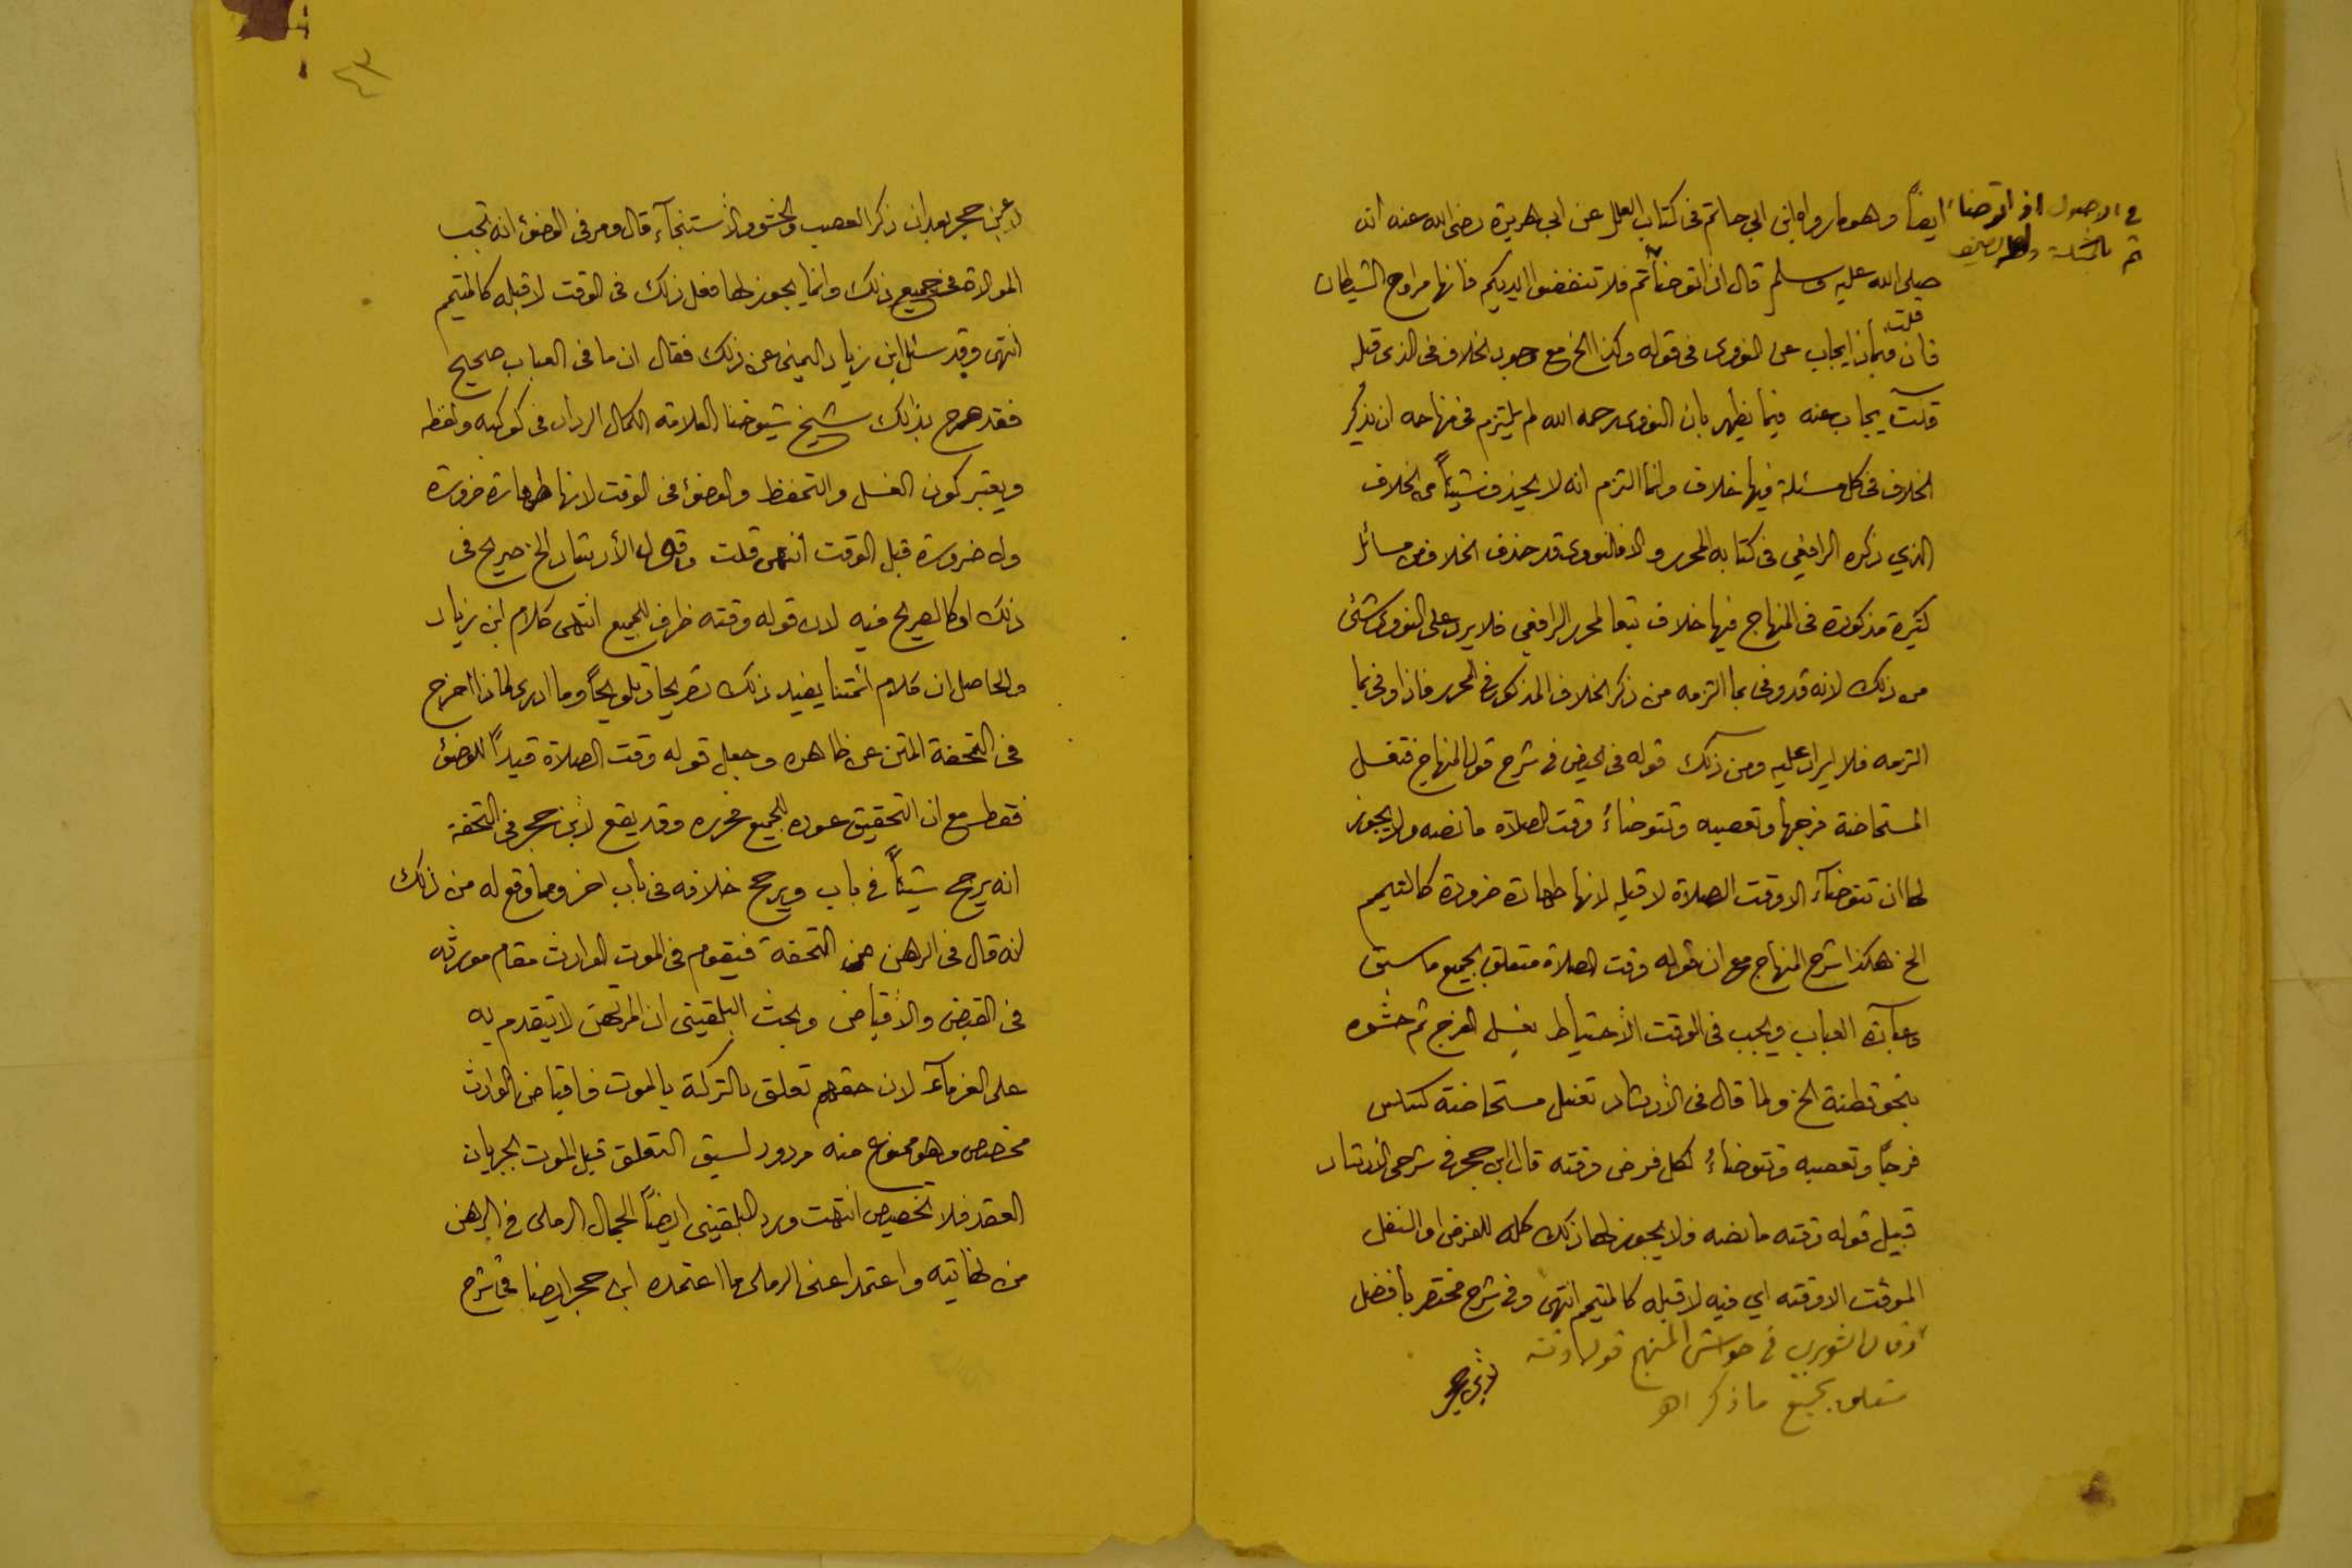 ايضاً وهو ما رواه ابن ابي حاتم في كتاب العلل عن ابي هريرة رضي الله عنه انه
في الاصول اذا توضاء
ثم بالمثلثة
صلى الله عليه وسلم قال اذا توضأتم فلا تنفضوا ايديكم فانها مراوح الشيطان
فان قلت فبماذا يجاب عن النووي في قوله وكذا الخ مع وجود الخلاف في الذي قبله
قلت يجاب عنه فيما يظهر بان النووي رحمه الله لم يلتزم في منهاجه ان يذكر
الخلاف في كل مسئلة فيها خلاف وانما التزم انه لا يحذف شيئاً من الخلاف
الذي ذكره الرافعي في كتابه المحرر والا فالنووي قد حذف الخلاف من مسائل
كثيرة مذكورة في المنهاج فيها خلاف تبعا لمحرر الرافعي فلا يرد على النووي شئ
من ذلك لانه قد وفى بما التزمه من ذكر الخلاف المذكور في المحرر فاذا وفى بما
التزمه فلا ايراد عليه ومن ذلك قوله في الحيض في شرح قول المنهاج فتغسل
المستحاضة فرجها وتعصبه وتتوضاء وقت الصلاة ما نصه ولا يجوز
لها ان تتوضآء الا وقت الصلاة لا قبله لانها طهارة ضرورة كالتيمم
الخ هكذا شرح المنهاج مع ان قوله وقت الصلاة متعلق بجميع ما سبق
وعبارة العباب ويجب في الوقت الأحتياط بغسل الفرج ثم حشوه
بنحو قطنة الخ ولما قال في الأرشاد تغسل مستحاضة كسلس
فرجًا وتعصبه وتتوضاءُ لكل فرض وقته قال ابن حجر في شرحي الأرشاد
قبيل قوله وقته ما نصه ولا يجوز لها ذلك كله للفرض او النفل
الموقت الا وقته اي فيه لا قبله كالمتيمم انتهى وفي شرح مختصر بافضل
وقال الشوبري في حواشي المنهج قوله وقته
متعلق بجميع ما ذكر اهـ
لأبن حجر
٤٣
لأبن حجر بعد ان ذكر العصب والحشو والأستنجآء قال ومر في الوضوء انه تجب
الموالاة في جميع ذلك وانما يجوز لها فعل ذلك في الوقت لا قبله كالمتيمم
انتهى وقد سئل ابن زياد اليمني عن ذلك فقال ان ما في العباب صحيح
فقد صرح بذلك شيخ شيوخنا العلامة الكمال الرداد في كوكبه ولفظه
ويعتبر كون الغسل والتحفظ والوضوء في الوقت لانها طهارة ضرورة
ولا ضرورة قبل الوقت انتهى قلت وقول الأرشاد الخ صريح في
ذلك او كالصريح فيه لان قوله وقته ظرف للجميع انتهى كلام ابن زياد
والحاصل ان كلام ائمتنا يفيد ذلك تصريحا وتلويحاً وما ادري لماذا اخرج
في التحفة المتن عن ظاهره وجعل قوله وقت الصلاة قيداً للوضوء
فقط مع ان التحقيق عوده للجميع فحرره وقد يقع لأبن حجر في التحفة
انه يرجح شيئاً في باب ويرجح خلافه في باب اخر ومما وقع له من ذلك
انه قال في الرهن من التحفة فيقوم في الموت الوارث مقام مورثه
في القبض والأقباض وبحث البلقيني ان المرتهن لا يتقدم به
على الغرمآء لان حقهم تعلق بالتركة بالموت فاقباض الوارث
تخصيص وهو ممنوع منه مردود لسبق التعلق قبل الموت بجريان
العقد فلا تخصيص انتهت ورد البلقيني ايضاً الجمال الرملي في الرهن
من نهايته واعتمد اعني الرملي ما اعتمده ابن حجر ايضا في شرح